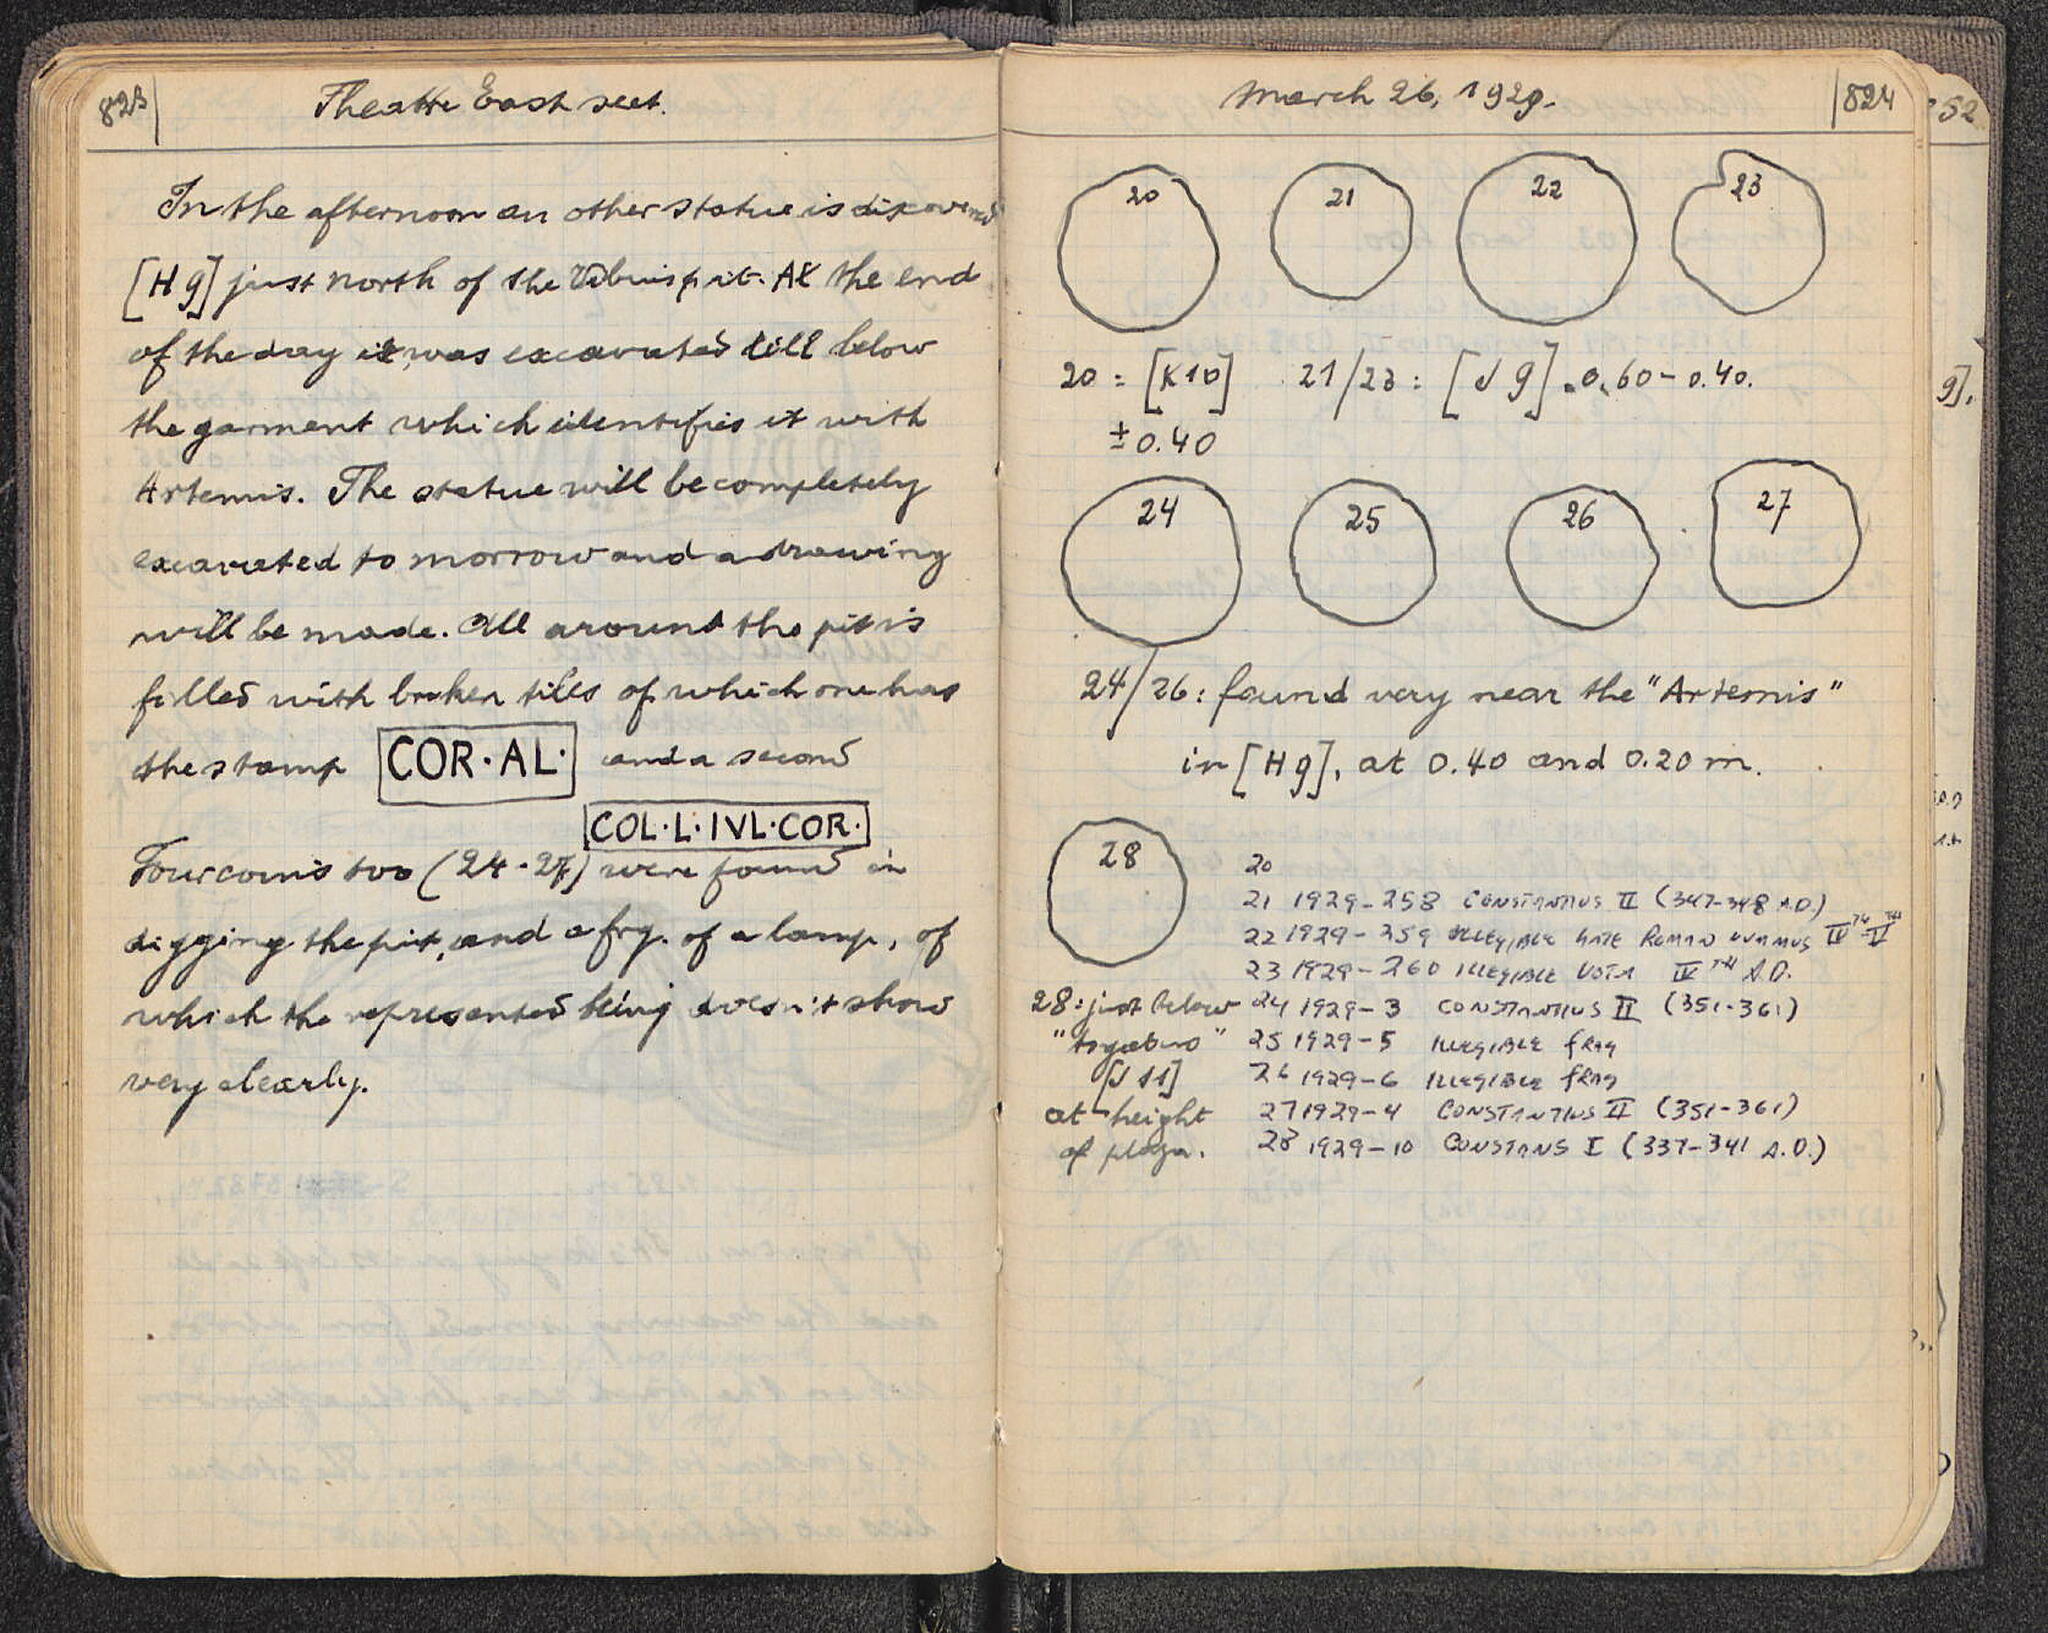 823
Theatre East sect.
In the afternoon an other statue is discovered
[H9] just north of the Vibius pit. At the end
of the day it was excavated till below
the garment which identifies it with
Artemis. The statue will be completely
excavated to morrow and a drawing
will be made. All around the pit is
filled with broken tiles of which one has
the stamp COR·AL· and a second
COL·L·IVL·COR·
Four coins too (24-27) were found in
digging the pit, and a frg. of a lamp, of
which the represented being doesn't show
very clearly.
March 26, 1929.
824
20 21 22 23
20 = [K10] 21/23: [J9]. 0.60 - 0.40.
± 0.40
24 25 26 27
24/26: found very near the "Artemis"
in [H9], at 0.40 and 0.20 m.
28
20
21 1929-258 CONSTANTIUS II (347-348 A.D.)
22 1929-359 ILLEGIBLE LATE ROMAN NUMMUS IV TH - V TH
23 1929-260 ILLEGIBLE VOTA IV TH A.D.
24 1929-3 CONSTANTIUS II (351-361)
25 1929-5 ILLEGIBLE FRAG
26 1929-6 ILLEGIBLE FRAG
27 1929-4 CONSTANTIUS II (351-361)
28 1929-10 CONSTANS I (337-341 A.D.)
28: just below
"togatus"
[J11]
at height
of plaza.
52
9].